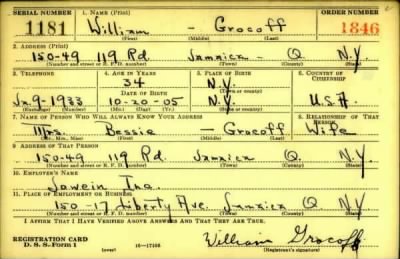 SERIAL NUMBER 1. NAME (Print) ORDER NUMBER
1181 William - Grocoff 1846
(First) (Middle) (Last)
2. ADDRESS (Print)
150-49 119 Rd. Jamaica - Q N.Y.
(Number and street or R. F. D. number) (Town) (County) (State)
3. TELEPHONE 4. AGE IN YEARS 5. PLACE OF BIRTH 6. COUNTRY OF CITIZENSHIP
34 N.Y.
DATE OF BIRTH (Town or county)
Ja 9-1933 10-20-05 N.Y. U.S.A.
(Exchange) (Number) (Mo.) (Day) (Yr.) (State or country)
7. NAME OF PERSON WHO WILL ALWAYS KNOW YOUR ADDRESS 8. RELATIONSHIP OF THAT PERSON
Mrs. Bessie - Grocoff Wife
(Mr., Mrs., Miss) (First) (Middle) (Last)
9. ADDRESS OF THAT PERSON
150-49 119 Rd. Jamaica Q. N.Y.
(Number and street or R. F. D. number) (Town) (County) (State)
10. EMPLOYER'S NAME
Inc.
11. PLACE OF EMPLOYMENT OR BUSINESS
150-17 Liberty Ave. Jamaica Q N.Y.
(Number and street or R. F. D. number) (Town) (County) (State)
I AFFIRM THAT I HAVE VERIFIED ABOVE ANSWERS AND THAT THEY ARE TRUE.
REGISTRATION CARD
D. S. S. Form 1 (over) William Grocoff
(Registrant's signature)